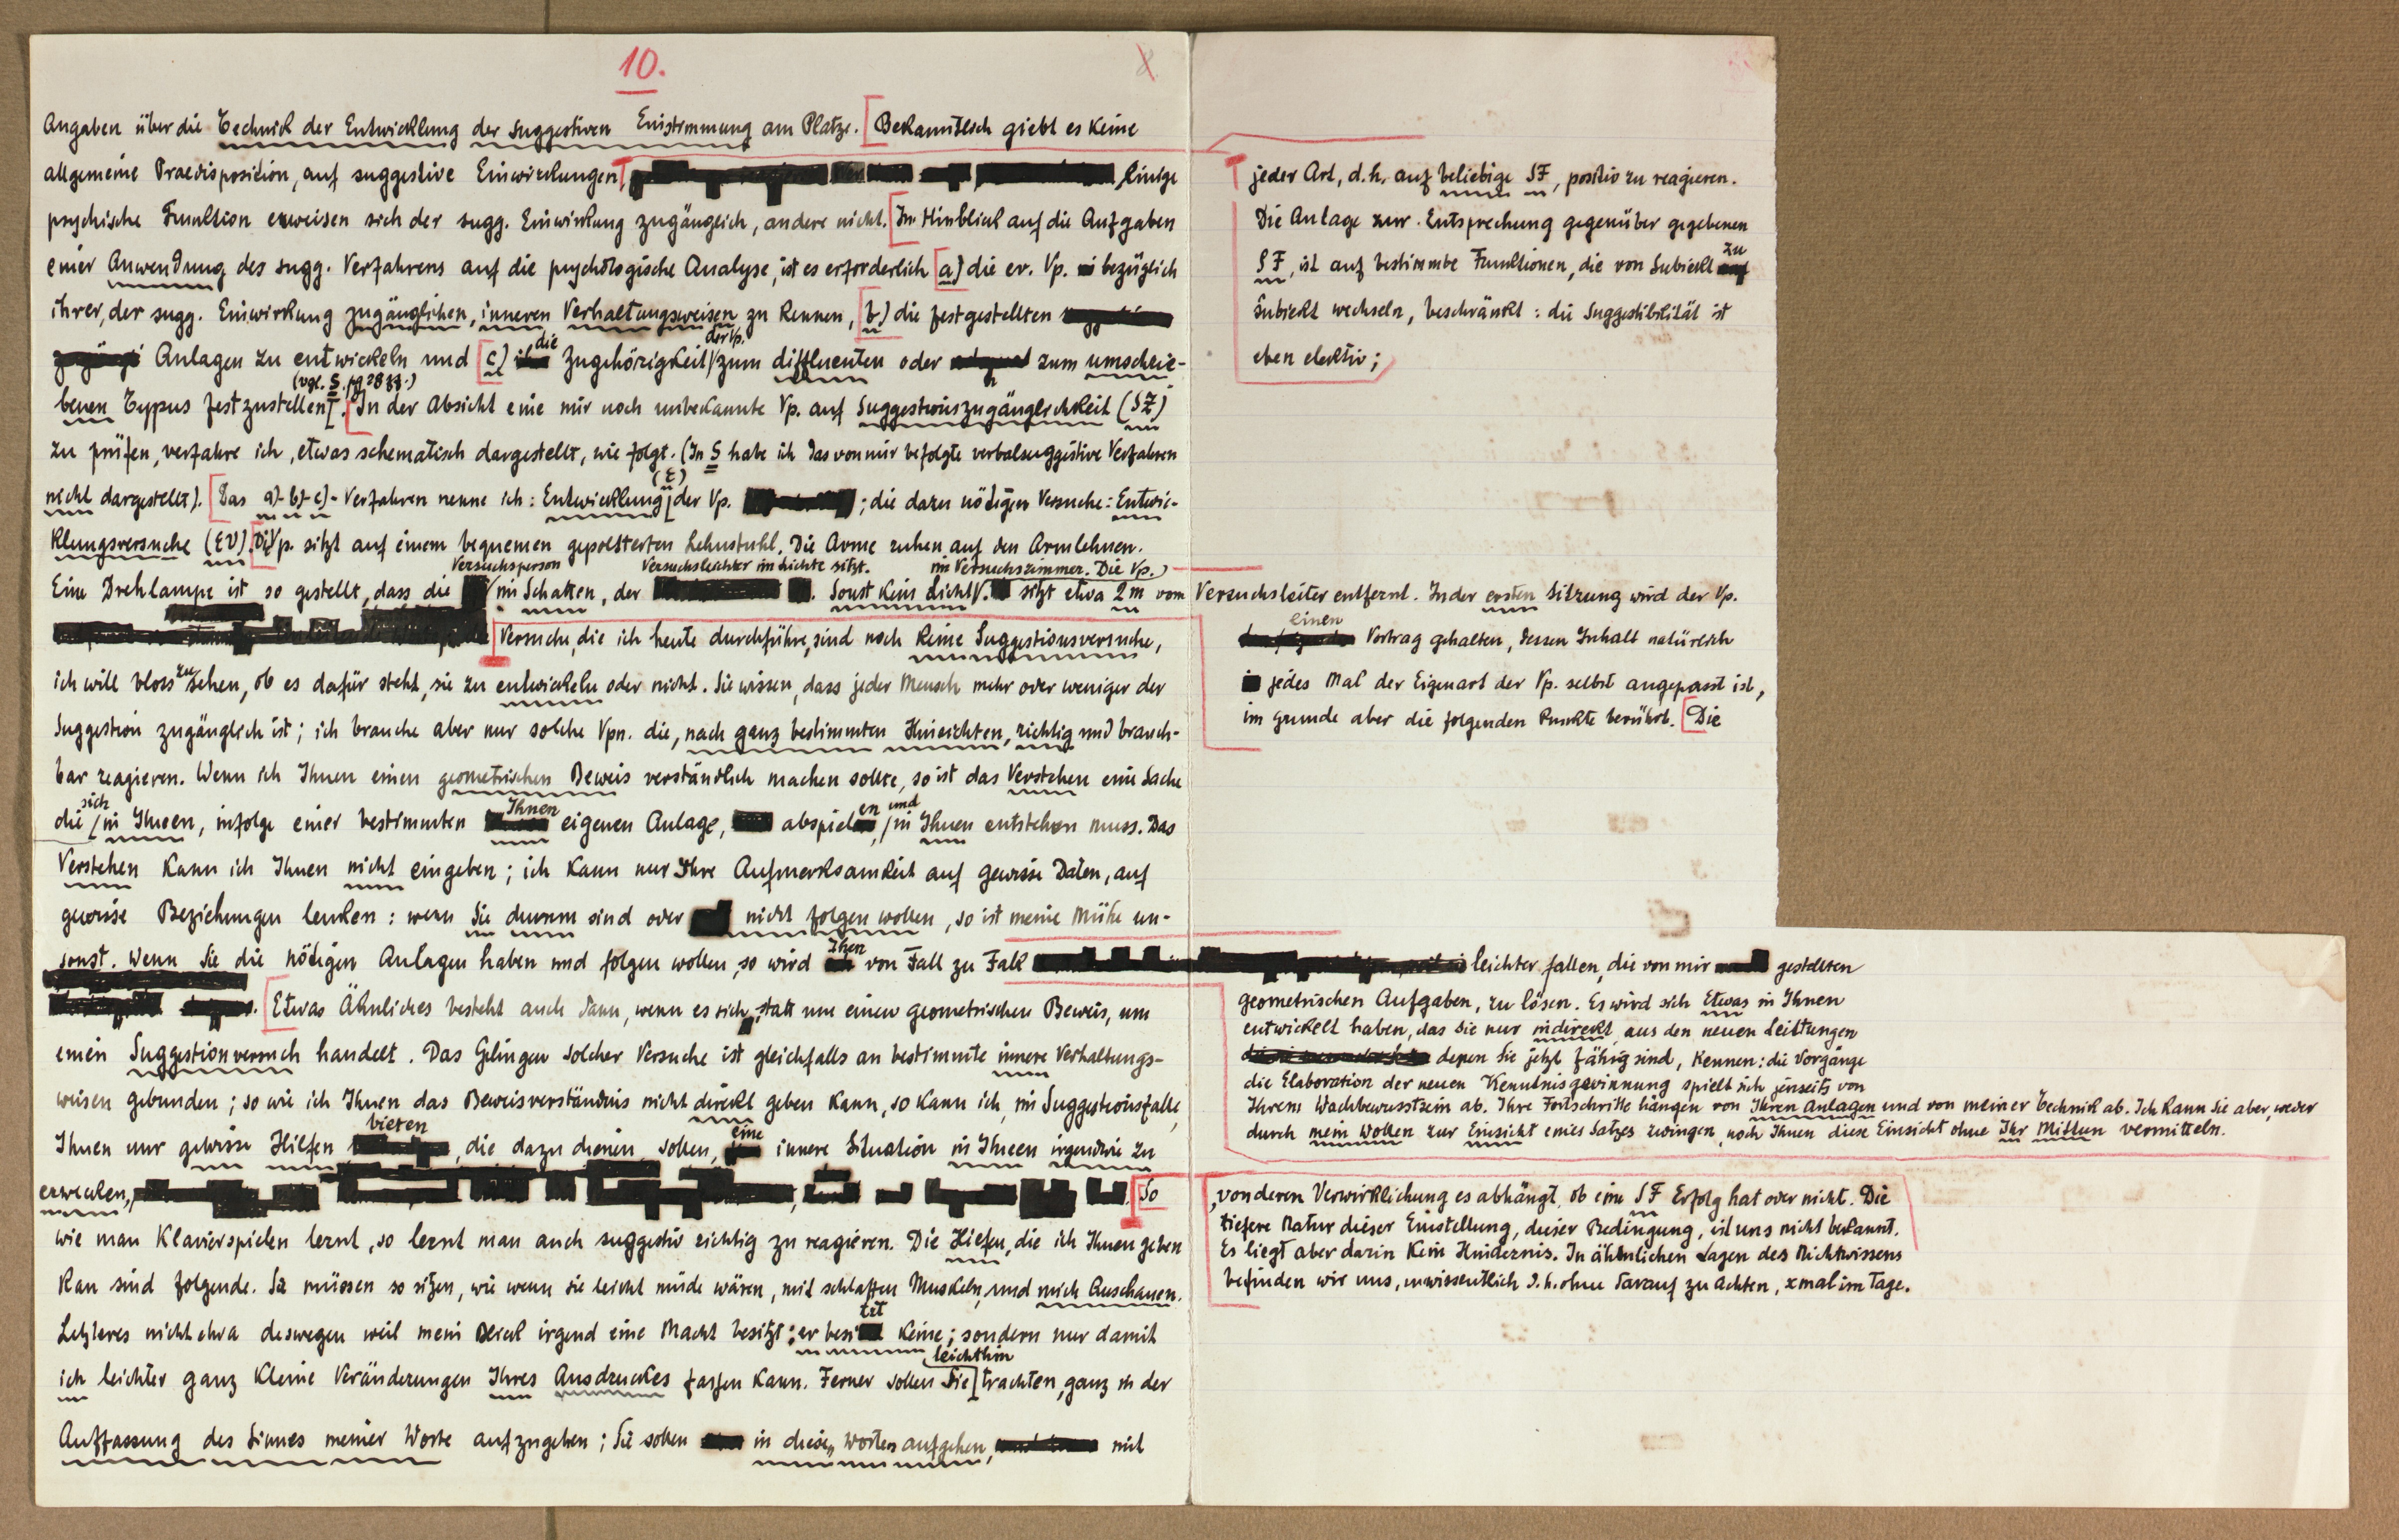 10.
8
Angaben über die Technik der Entwicklung der suggestiven Einstimmung am Platze. [Bekanntlich giebt es keine
allgemeine Praedisposition, auf suggestive Einwirkungen, einige
psychische Funktion erweisen sich der sugg. Einwirkung zugänglich, andere nicht. [Im Hinblick auf die Aufgaben
einer Anwendung des sugg. Verfahrens auf die psychologische Analyse, ist es erforderlich [a) die ev. Vp. bezüglich
ihrer, der sugg. Einwirkung zugänglichen, inneren Verhaltungsweisen zu kennen, [b) die festgestellten
die der Vp.
Anlagen zu entwickeln und [c) Zugehörigkeit zum diffluenten oder zum umschrie-
(vgl. S. pg 28 ff.)
benen Typus festzustellen. [In der Absicht eine mir noch unbekannte Vp. auf Suggestionszugänglichkeit (SZ)
zu prüfen, verfahre ich, etwas schematisch dargestellt, wie folgt. (In S habe ich das von mir befolgte verbalsuggestive Verfahren
(E)
nicht dargestellt). [Das a)- b)- c)- Verfahren nenne ich: Entwicklung der Vp. ; die dazu nötigen Versuche: Entwic-
klungsversuche (EV). [Die Vp. sitzt auf einem bequemen gepolsterten Lehnstuhl. Die Arme ruhen auf den Armlehnen.
Versuchsperson Versuchsleichter im Lichte sitzt. im Versuchszimmer. Die Vp.
Eine Drehlampe ist so gestellt, dass die im Schatten, der . Sonst kein Licht. sitzt etwa 2 m vom
[Versuche, die ich heute durchführe, sind noch keine Suggestionsversuche,
ich will bloss zusehen, ob es dafür steht, sie zu entwickeln oder nicht. Sie wissen, dass jeder Mensch mehr oder weniger der
Suggestion zugänglich ist; ich brauche aber nur solche Vpn. die, nach ganz bestimmten Hinsichten, richtig und brauch-
bar reagieren. Wenn ich Ihnen einen geometrischen Beweis verständlich machen sollte, so ist das Verstehen eine Sache
sich Ihnen en und
die in Ihnen, infolge einer bestimmten eigenen Anlage, abspielen, in Ihnen entstehen muss. Das
Verstehen kann ich Ihnen nicht eingeben; ich kann nur Ihre Aufmerksamkeit auf gewisse Daten, auf
gewisse Beziehungen lenken: wenn Sie dumm sind oder nicht folgen wollen, so ist meine Mühe un-
Ihen
sonst. Wenn Sie die nötigen Anlagen haben und folgen wollen, so wird von Fall zu Fall
. [Etwas Ähnliches besteht auch dann, wenn es sich, statt um einen geometrischen Beweis, um
einen Suggestionversuch handelt. Das Gelingen solcher Versuche ist gleichfalls an bestimmte innere Verhaltungs-
weisen gebunden; so wie ich Ihnen das Beweisverständnis nicht direkt geben kann, so kann ich, im Suggestionsfalle,
bieten eine
Ihnen nur gewisse Hilfen , die dazu dienen sollen, innere Situation in Ihnen irgendwie zu
erwecken, [So
wie man Klavierspielen lernt, so lernt man auch suggestiv richtig zu reagieren. Die Hilfen, die ich Ihnen geben
kan sind folgende. Sie müssen so sitzen, wie wenn sie leicht müde wären, mit schlaffen Muskeln, und mich Anschauen.
tzt
Letzteres nicht etwa deswegen weil mein Blick irgend eine Macht besitzt: er besi keine; sondern nur damit
leichthin
ich leichter ganz kleine Veränderungen Ihres Ausdruckes fassen kann. Ferner sollen Sie trachten, ganz in der
Auffassung des Sinnes meiner Worte aufzugehen; Sie sollen in diesen Worten aufgehen, mit
jeder Art, d.h. auf beliebige SF, positiv zu reagieren.
Die Anlage zur Entsprechung gegenüber gegebenen
zu
SF, ist auf bestimmte Funktionen, die von Subiekt
Subiekt wechseln, beschränkt: die Suggestibilität ist
eben elektiv;
Versuchsleiter entfernt. In der ersten Sitzung wird der Vp.
einen
Vortrag gehalten, dessen Inhalt natürlich
jedes Mal der Eigenart der Vp. selbst angepasst ist,
im Grunde aber die folgenden Punkte berührt. [Die
leichter fallen, die von mir gestellten
geometrischen Aufgaben, zu lösen. Es wird sich Etwas in Ihnen
entwickelt haben, das Sie nur indirekt, aus den neuen Leistungen
denen Sie jetzt fähig sind, kennen: die Vorgänge
die Elaboration der neuen Kenntnisgewinnung spielt sich jenseits von
Ihrem Wachbewusstsein ab. Ihre Fortschritte hängen von Ihren Anlagen und von meiner Technik ab. Ich kann Sie aber, weder
durch mein Wollen zur Einsicht eines Satzes zwingen, noch Ihnen diese Einsicht ohne Ihr Mittun vermitteln.
, von deren Verwirklichung es abhängt, ob eine SF Erfolg hat oder nicht. Die
tiefere Natur dieser Einstellung, dieser Bedingung, ist uns nicht bekannt.
Es liegt aber darin kein Hindernis. In ähnlichen Lagen des Nichtwissens
befinden wir uns, unwissentlich d.h. ohne darauf zu achten, x mal im Tage.